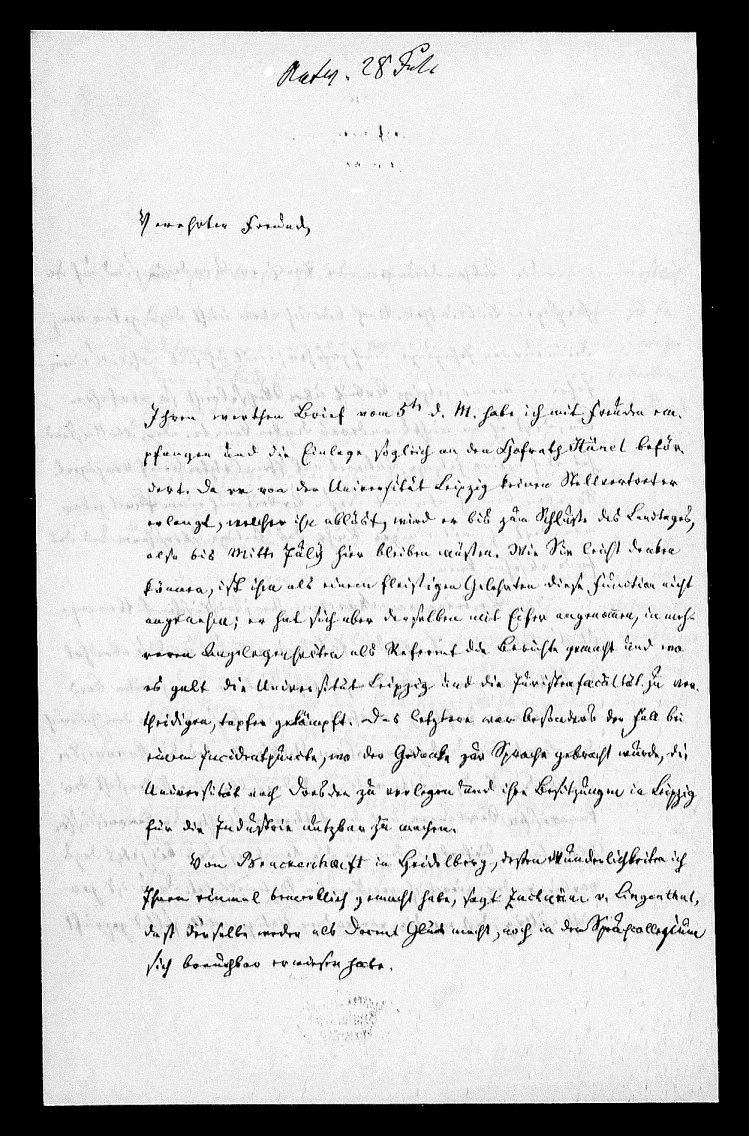 28 Juli
Verehrter Freund,
Ihren werthen Brief vom 5ten d. M. habe ich mit Freuden em-
pfangen und die Einlage sogleich an den Hofrath Hänel beför-
dert. Da er von der Universität Leipzig keinen Stellvertreter
erlangt, welcher ihn ablöst, wird er bis zum Schluße des Landtages,
also bis Mitte July hier bleiben müssen. Wie Sie leicht denken
können, ist ihm als einem fleißigen Gelehrten diese Function nicht
angenehm; er hat sich aber derselben mit Eifer angenommen, in meh-
reren Angelegenheiten als Referent die Berichte gemacht und wo
es galt die Universität Leipzig und die Juristenfacultät zu ver-
theidigen, tapfer gekämpft. Das letztere war besonders der Fall bei
einem Incidentpuncte, wo der Gedanke zur Sprache gebracht wurde, die
Universität nach Dresden zu verlegen und ihre Besitzungen in Leipzig
für die Industrie nutzbar zu machen.
Von in Heidelberg, dessen Wunderlichkeiten ich
Ihnen einmal bemerklich gemacht habe, sagt Zachariä v. Lingenthal,
daß derselbe weder als Docent Glück macht, noch in dem Spruchcollegium
sich brauchbar erwiesen habe.